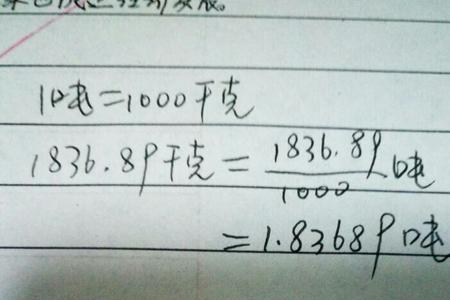 1吨=1000千克
1836.89千克=1836.89/1000吨
=1.83689吨